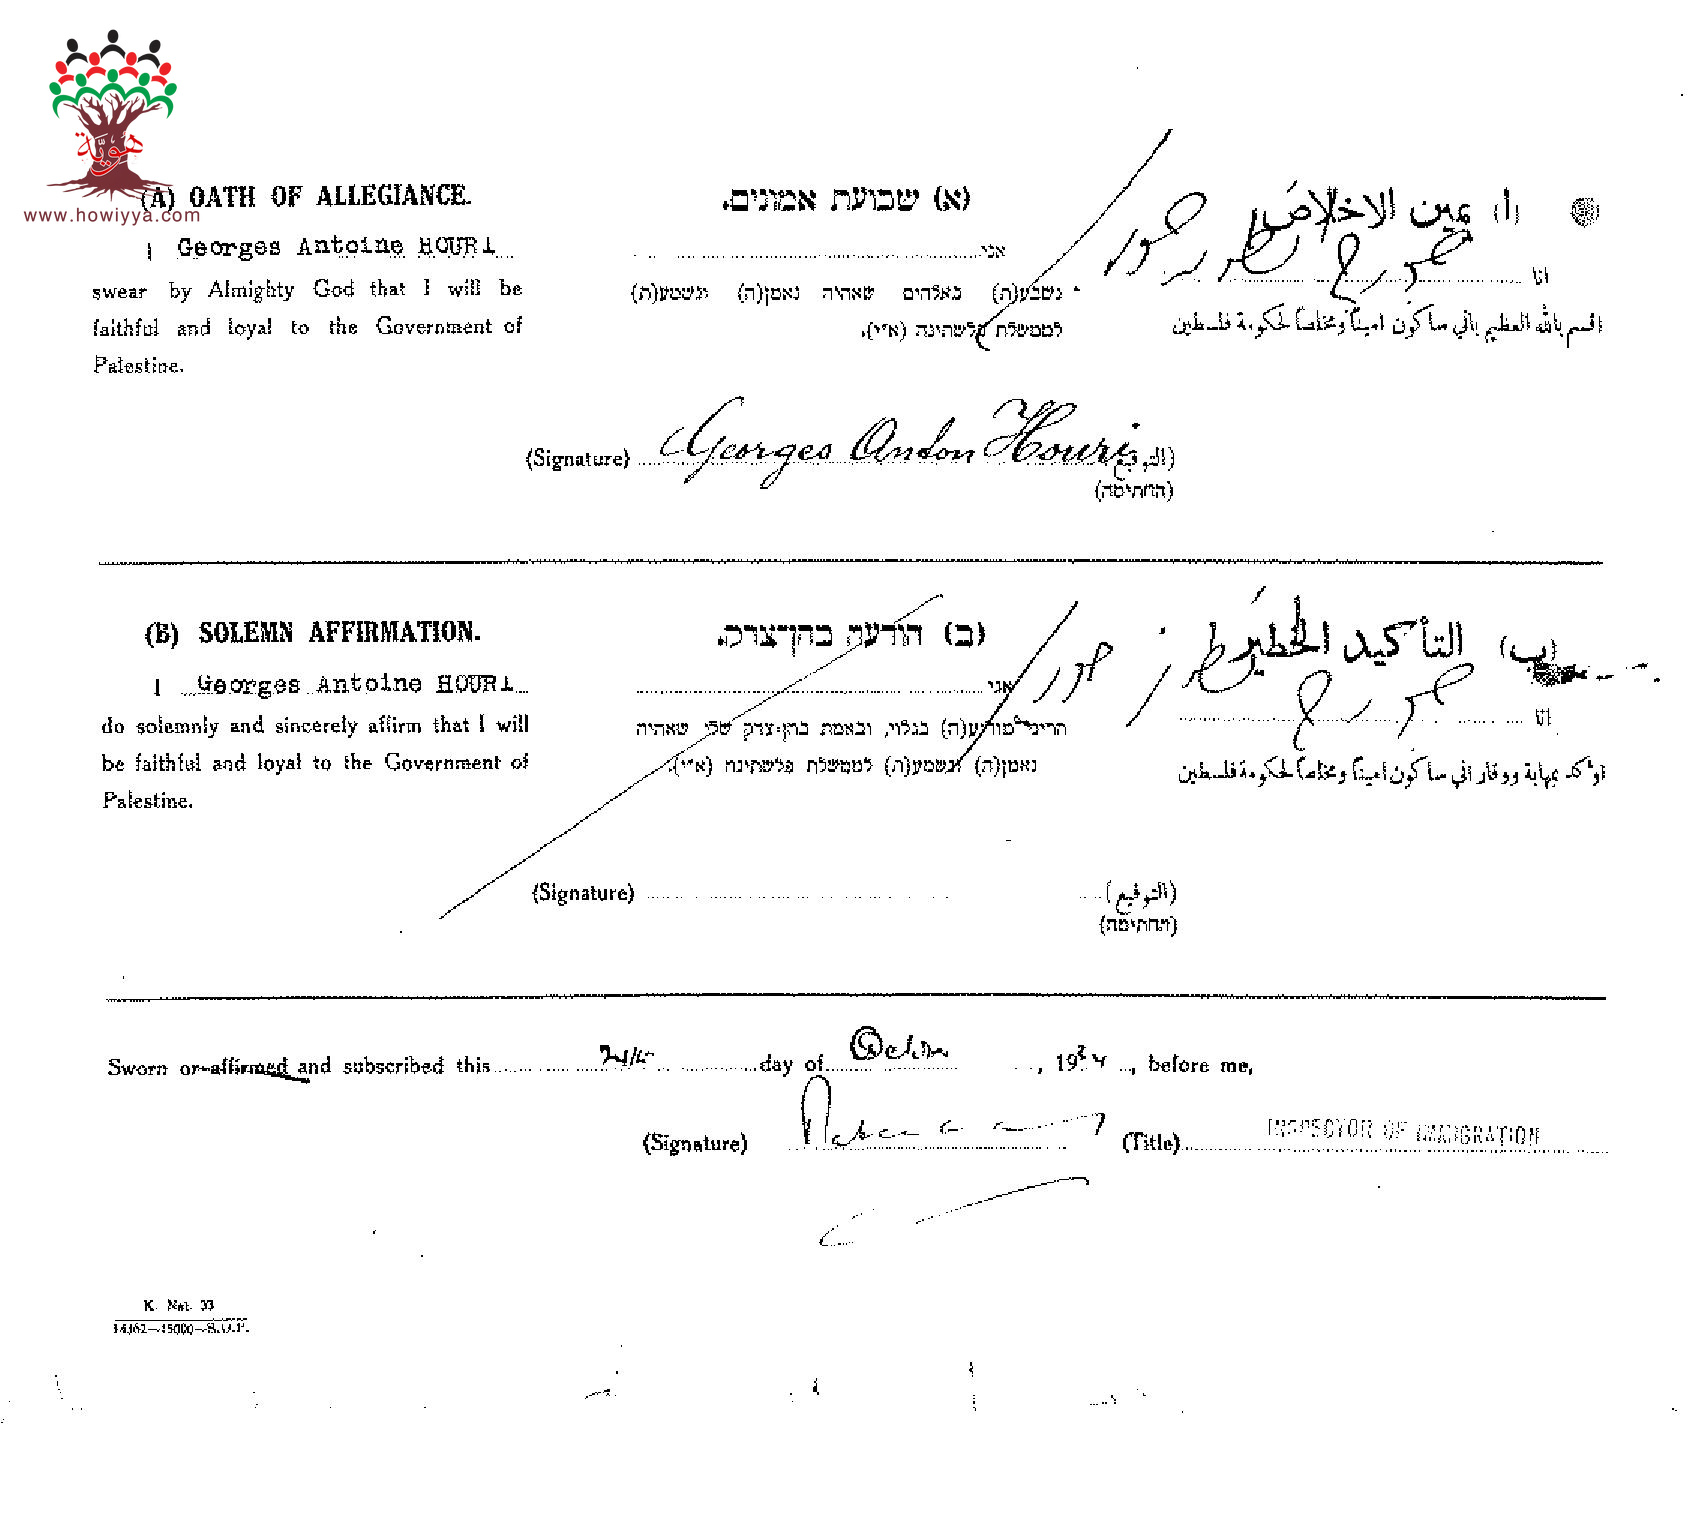 هويّة
www.howiyya.com
(A) OATH OF ALLEGIANCE.
I Georges Antoine HOURI
swear by Almighty God that I will be
faithful and loyal to the Government of
Palestine.
(א) שבועת אמונים.
אני
נשבע(ת) באלהים שאהיה נאמן(ה) ונשמע(ת)
לממשלת פלשתינה (א״י).
(ا) يمين الاخلاص
انا
اقسم بالله العظيم باني ساكون اميناً ومخلصاً لحكومة فلسطين
(Signature) Georges Anton Houri (التوقيع)
(החתימה)
(B) SOLEMN AFFIRMATION.
I Georges Antoine HOURI
do solemnly and sincerely affirm that I will
be faithful and loyal to the Government of
Palestine.
(ב) הודעה בהן־צדק.
אני
הריני מודיע(ה) בגלוי, ובאמת בהן־צדק שלי שאהיה
נאמן(ה) ונשמע(ת) לממשלת פלשתינה (א״י).
(ب) التأكيد الخطير
انا
اؤكد بمهابة ووقار اني ساكون اميناً ومخلصاً لحكومة فلسطين
(Signature) (التوقيع)
(החתימה)
Sworn or affirmed and subscribed this day of , 1934, before me,
(Signature) (Title) INSPECTOR OF IMMIGRATION
K. Nat. 33